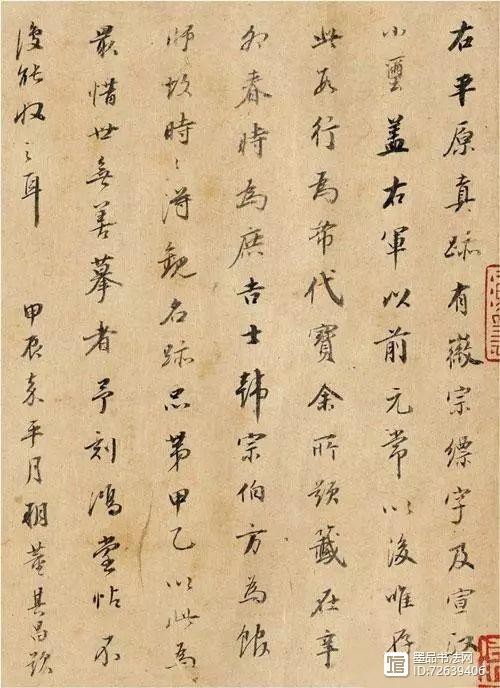 右平原真跡有徽宗縹字及宣
小璽盖右軍以前元常以後唯存
此數行為希代寶余所題籤在辛
卯春時為庶吉士韩宗伯方為館
師故時〻得觀名跡品第甲乙以此為
最惜世無善摹者予刻鴻堂帖不
復能收之耳 甲辰嘉平月朔董其昌題
墨品书法网
ID:72639406